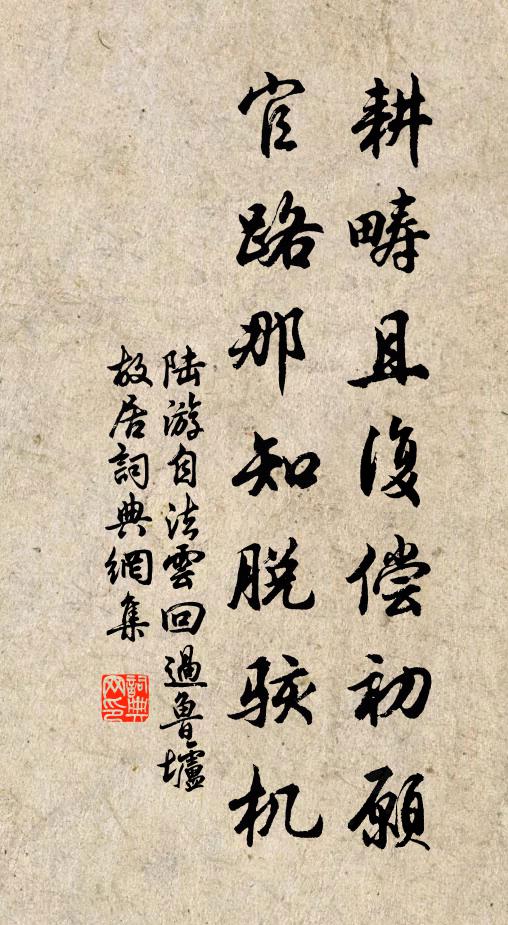 耕畴且復偿初願
官路那知脱駭机
陆游自法雲回過魯壚
故居詞典網集
詞典网印